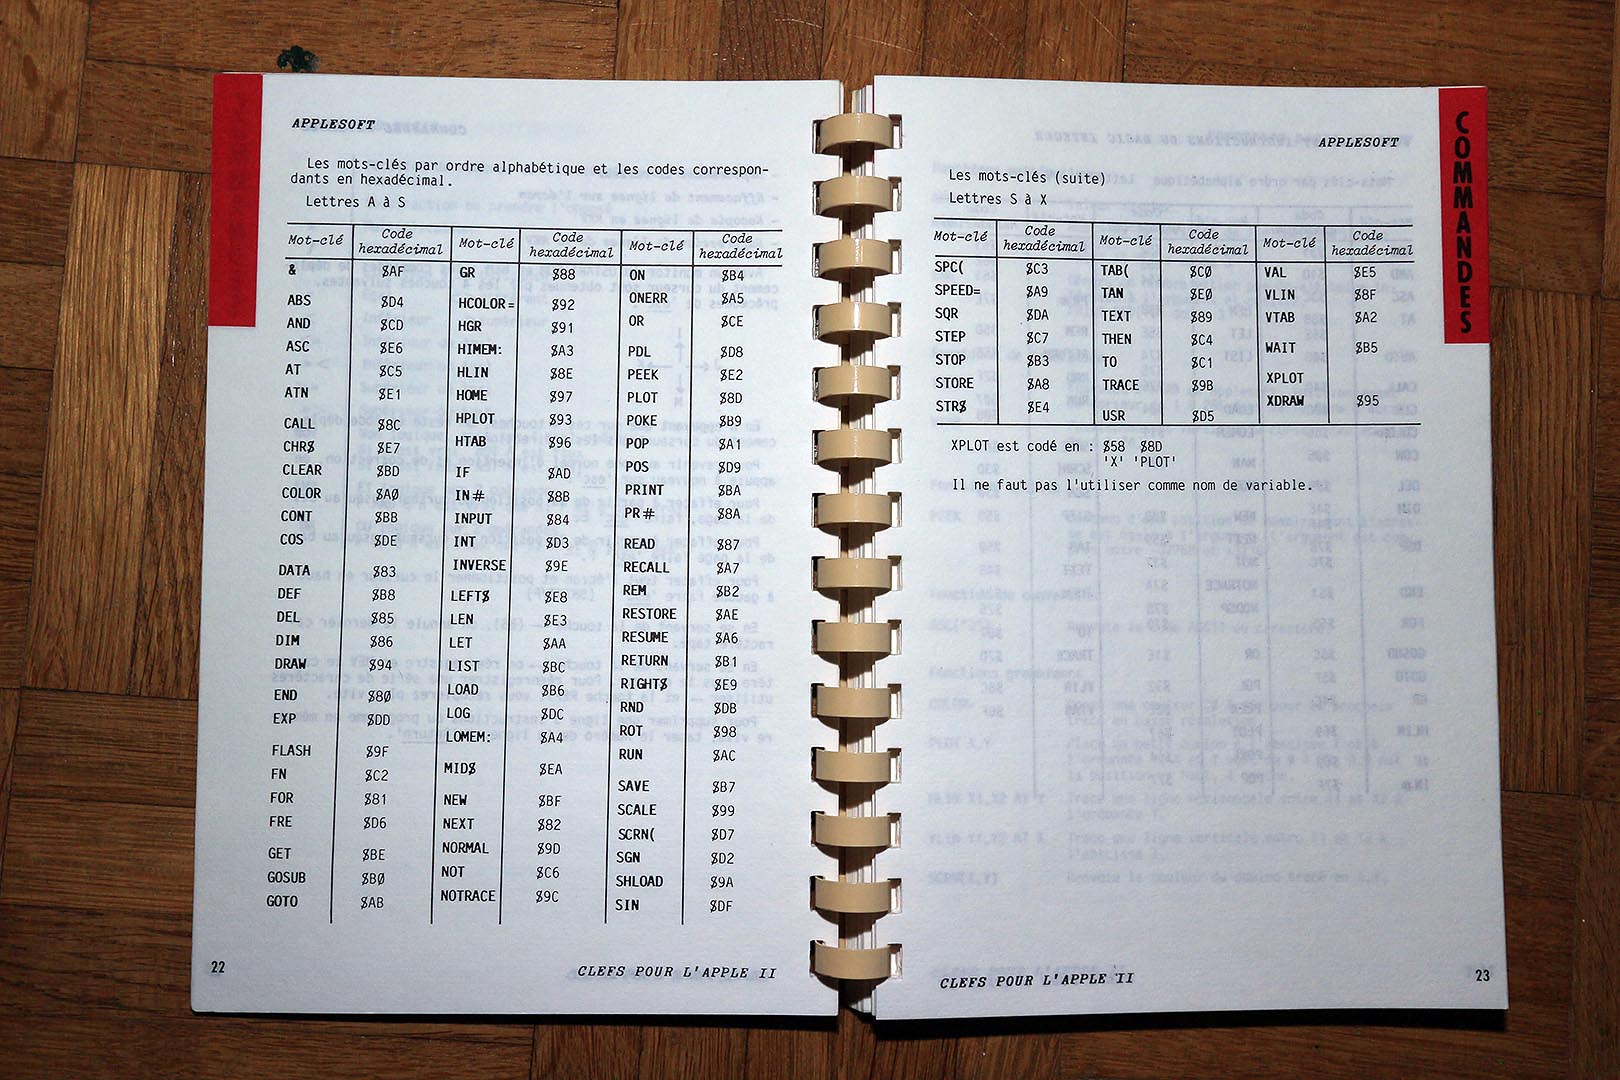 APPLESOFT
Les mots-clés par ordre alphabétique et les codes correspon-
dants en hexadécimal.
Lettres A à S
Mot-clé Code hexadécimal Mot-clé Code hexadécimal Mot-clé Code hexadécimal
& $AF GR $88 ON $B4
ABS $D4 HCOLOR= $92 ONERR $A5
AND $CD HGR $91 OR $CE
ASC $E6 HIMEM: $A3 PDL $D8
AT $C5 HLIN $8E PEEK $E2
ATN $E1 HOME $97 PLOT $8D
CALL $8C HPLOT $93 POKE $B9
CHR$ $E7 HTAB $96 POP $A1
CLEAR $BD IF $AD POS $D9
COLOR $A0 IN# $8B PRINT $BA
CONT $BB INPUT $84 PR# $8A
COS $DE INT $D3 READ $87
DATA $83 INVERSE $9E RECALL $A7
DEF $B8 LEFT$ $E8 REM $B2
DEL $85 LEN $E3 RESTORE $AE
DIM $86 LET $AA RESUME $A6
DRAW $94 LIST $BC RETURN $B1
END $80 LOAD $B6 RIGHT$ $E9
EXP $DD LOG $DC RND $DB
FLASH $9F LOMEM: $A4 ROT $98
FN $C2 MID$ $EA RUN $AC
FOR $81 NEW $BF SAVE $B7
FRE $D6 NEXT $82 SCALE $99
GET $BE NORMAL $9D SCRN( $D7
GOSUB $B0 NOT $C6 SGN $D2
GOTO $AB NOTRACE $9C SHLOAD $9A
SIN $DF
22
CLEFS POUR L'APPLE II
COMMANDES
APPLESOFT
Les mots-clés (suite)
Lettres S à X
Mot-clé Code hexadécimal Mot-clé Code hexadécimal Mot-clé Code hexadécimal
SPC( $C3 TAB( $C0 VAL $E5
SPEED= $A9 TAN $E0 VLIN $8F
SQR $DA TEXT $89 VTAB $A2
STEP $C7 THEN $C4 WAIT $B5
STOP $B3 TO $C1 XPLOT
STORE $A8 TRACE $9B XDRAW $95
STR$ $E4 USR $D5
XPLOT est codé en : $58 $8D
'X' 'PLOT'
Il ne faut pas l'utiliser comme nom de variable.
CLEFS POUR L'APPLE II
23